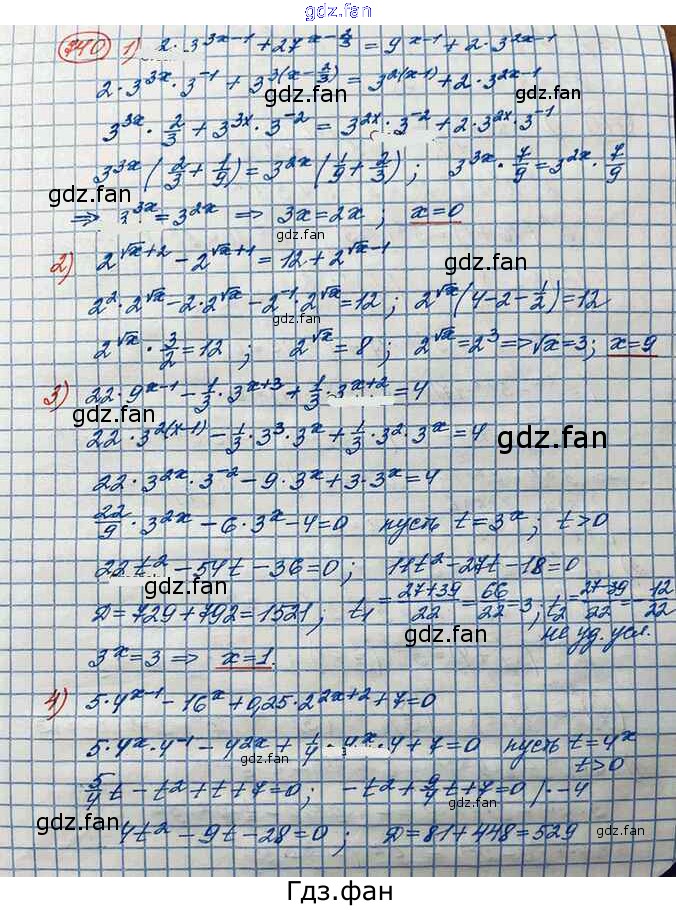 gdz.fan
740 1) 2·3^{3x-1} + 27^{x-2/3} = 9^{x-1} + 2·3^{2x-1}
2·3^{3x}·3^{-1} + 3^{3(x-2/3)} = 3^{2(x-1)} + 2·3^{2x-1}
gdz.fan gdz.fan
3^{3x}·2/3 + 3^{3x}·3^{-2} = 3^{2x}·3^{-2} + 2·3^{2x}·3^{-1}
3^{3x}(2/3 + 1/9) = 3^{2x}(1/9 + 2/3); 3^{3x}·7/9 = 3^{2x}·7/9
gdz.fan gdz.fan
⇒ 3^{3x} = 3^{2x} ⇒ 3x = 2x; x=0
gdz.fan
2) 2^{√x+2} - 2^{√x+1} = 12 + 2^{√x-1}
gdz.fan
2²·2^{√x} - 2·2^{√x} - 2^{-1}·2^{√x} = 12; 2^{√x}(4-2-1/2) = 12
gdz.fan
2^{√x}·3/2 = 12; 2^{√x} = 8; 2^{√x} = 2³ ⇒ √x = 3; x=9
gdz.fan
3) 22·9^{x-1} - 1/3·3^{x+3} + 1/3·3^{x+2} = 4
gdz.fan
22·3^{2(x-1)} - 1/3·3³·3^x + 1/3·3²·3^x = 4
gdz.fan
22·3^{2x}·3^{-2} - 9·3^x + 3·3^x = 4
gdz.fan
22/9·3^{2x} - 6·3^x - 4 = 0 пусть t = 3^x; t>0
22t² - 54t - 36 = 0; 11t² - 27t - 18 = 0
gdz.fan
D = 729 + 792 = 1521; t₁ = (27+39)/22 = 66/22 = 3; t₂ = (27-39)/22 = -12/22
gdz.fan не уд. усл.
3^x = 3 ⇒ x=1.
gdz.fan
4) 5·4^{x-1} - 16^x + 0,25·2^{2x+2} + 7 = 0
5·4^x·4^{-1} - 4^{2x} + 1/4·4^x·4 + 7 = 0 пусть t = 4^x
gdz.fan t>0
5/4t - t² + t + 7 = 0; -t² + 9/4t + 7 = 0 |·-4
gdz.fan
4t² - 9t - 28 = 0; D = 81 + 448 = 529
gdz.fan
Гдз.фан